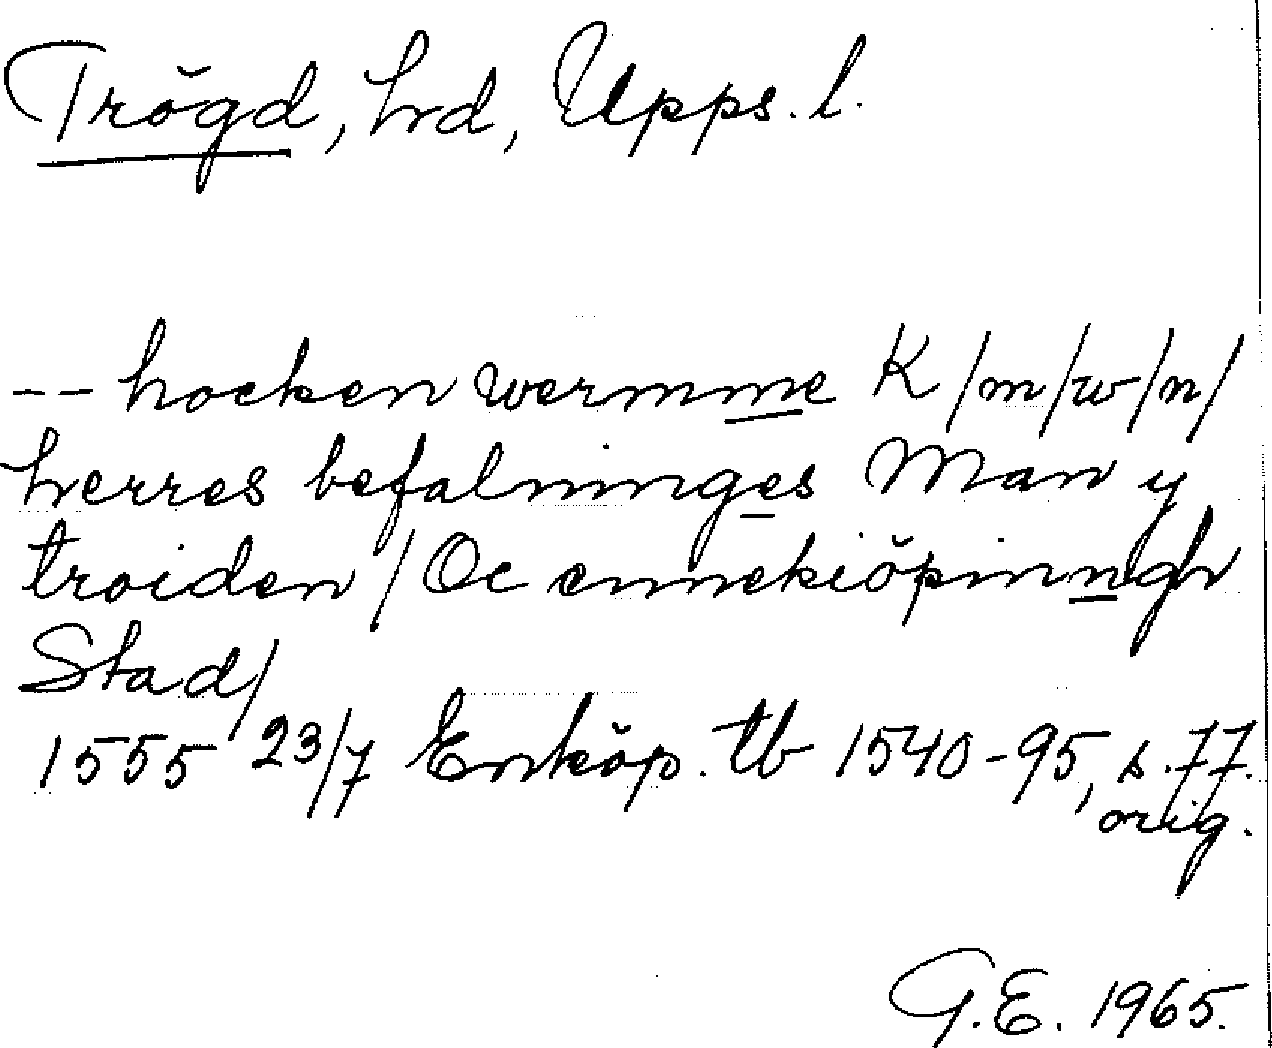 Trögd, hrd, Upps. l.
-- hocken wermme K/m/w/n/
herres befalninges Man y
troiden/Oc ennekiöpinngh
Stad/
1555 23/7 Enköp. tb 1540-95, s. 77.
orig.
G.E. 1965.